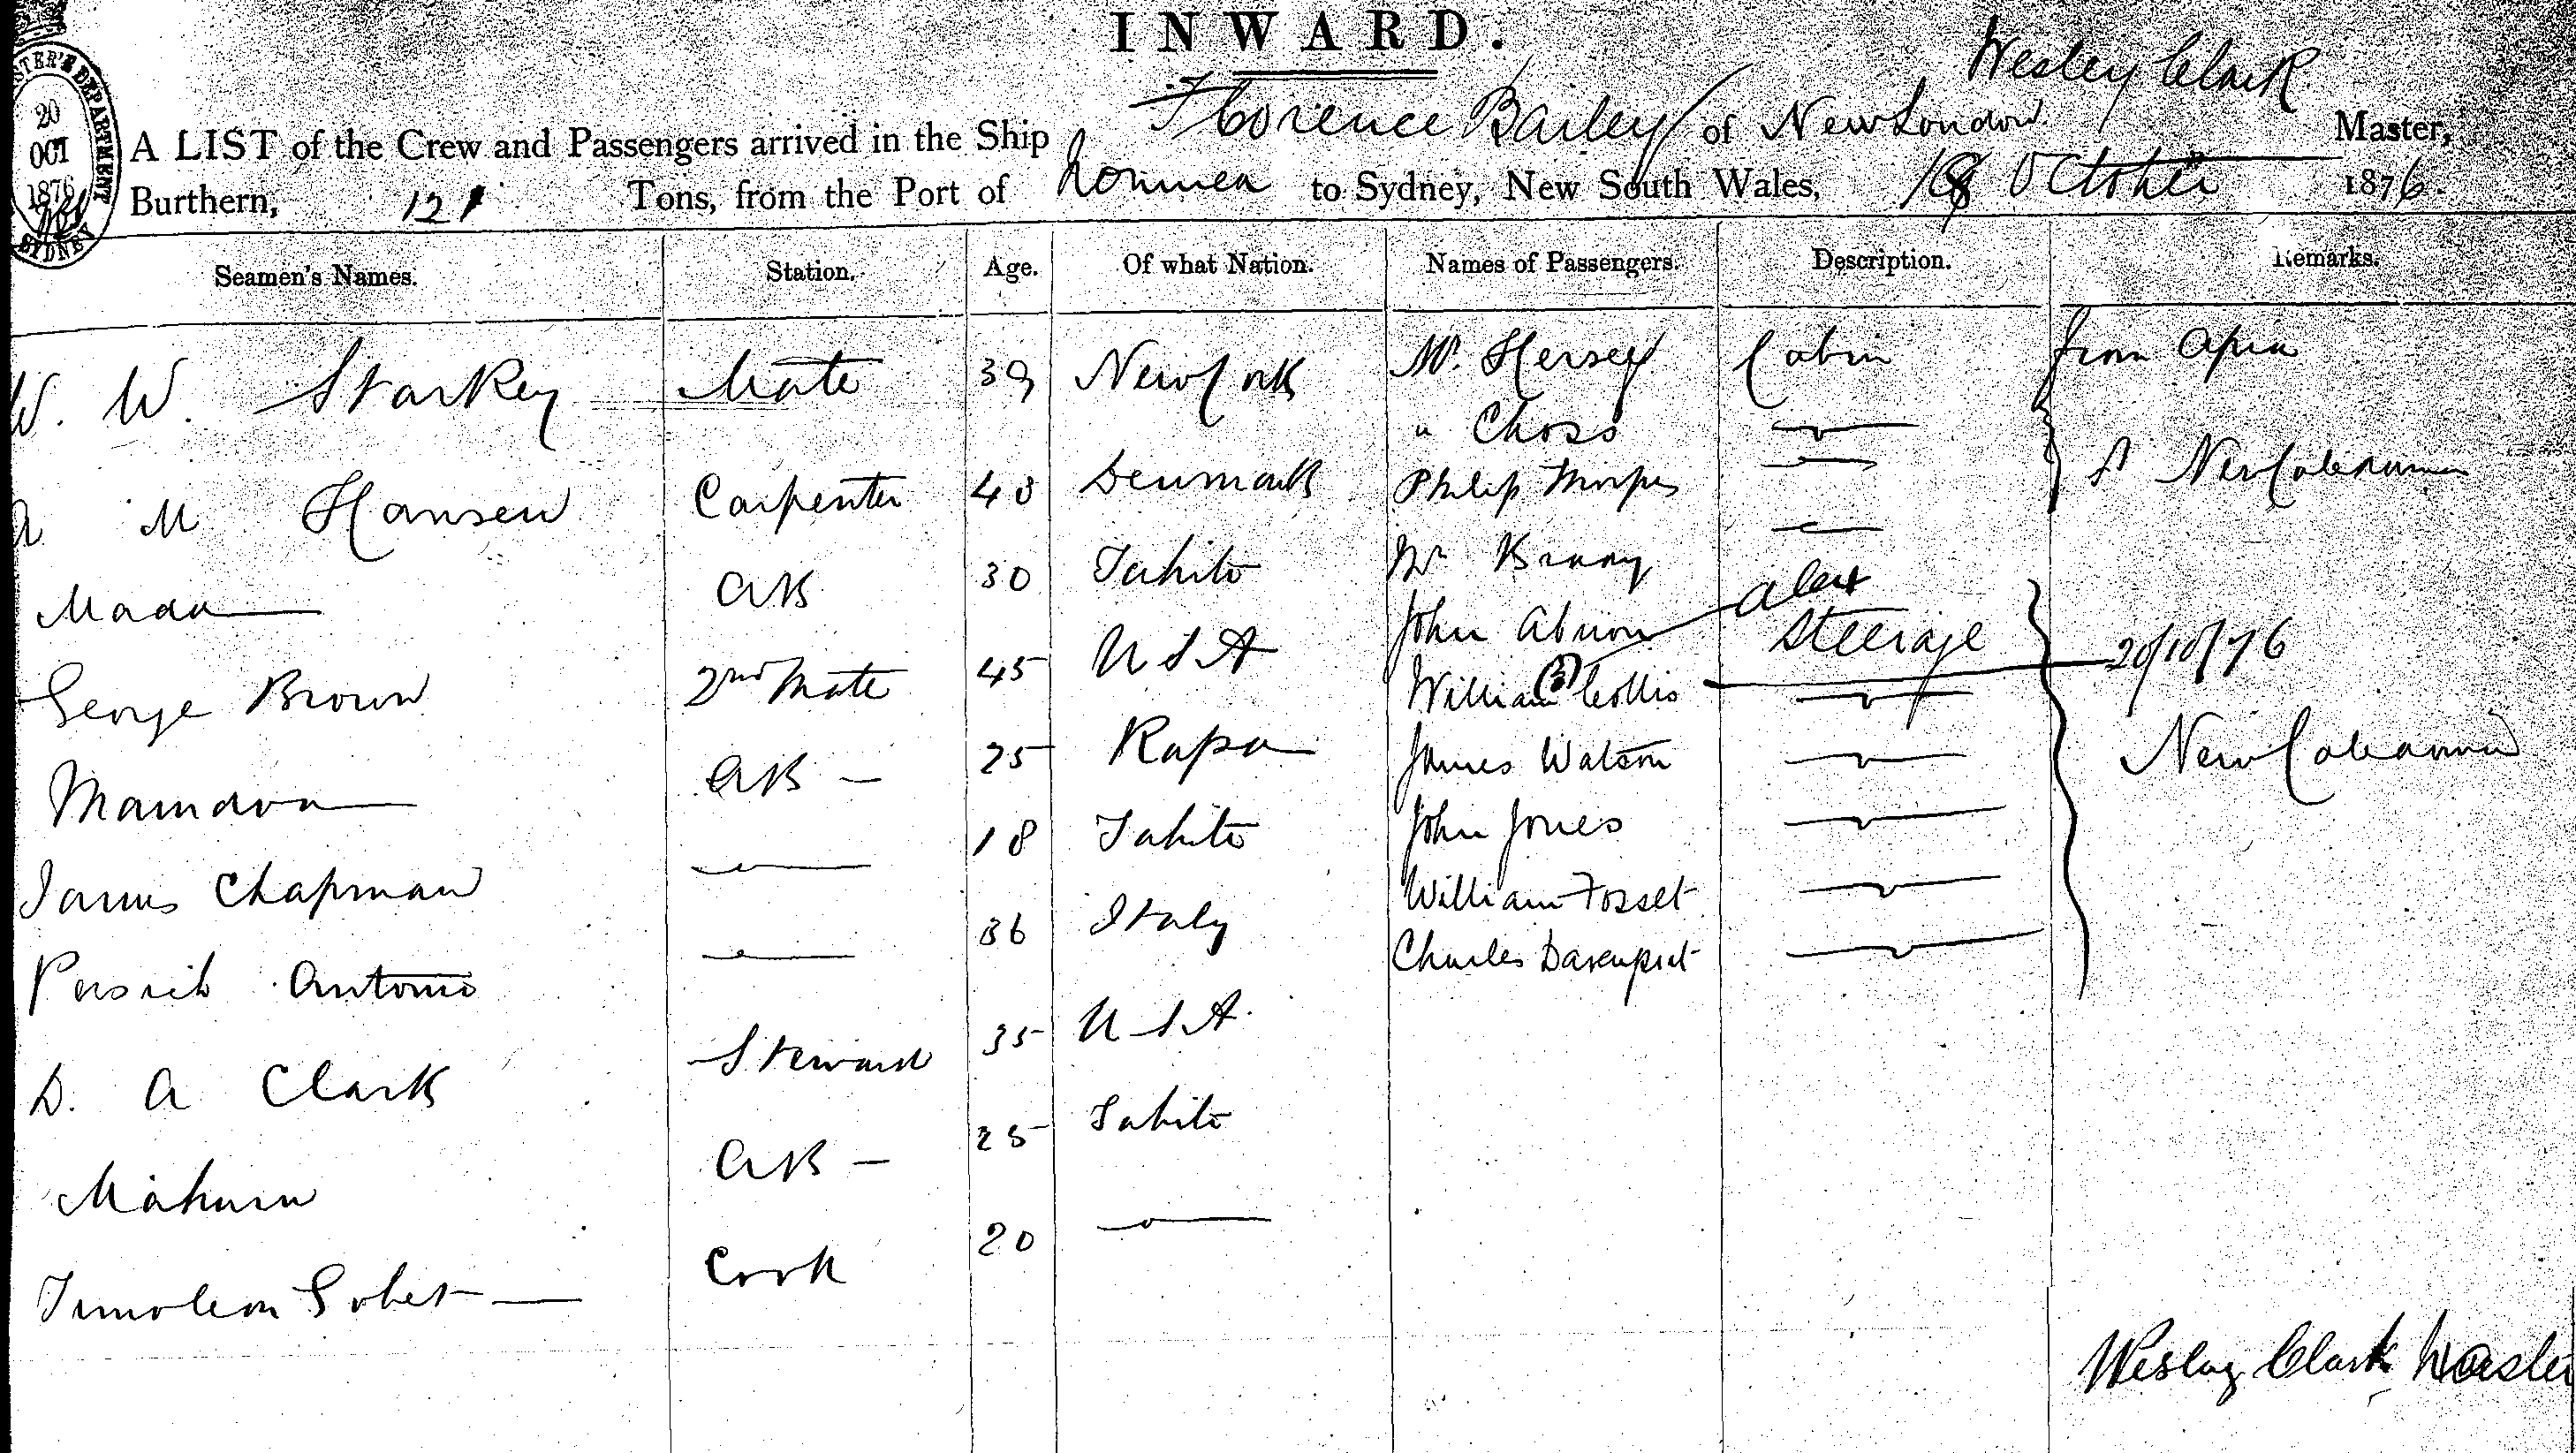 INWARD.
STER'S DEPARTMENT
20
OCT
1876
SYDNEY
Wesley Clark
A LIST of the Crew and Passengers arrived in the Ship Florence Bailey of New London Master,
Burthern, 121 Tons, from the Port of Noumea to Sydney, New South Wales, October 1876.
Seamen's Names. Station. Age. Of what Nation. Names of Passengers. Description. Remarks.
W. W. Starkey Mate 39 New York Mr. Hersey Cabin from Apia
" Choss
A M Hansen Carpenter 43 Denmark Philip
Mada AB 30 Tahiti Mr
John alex Steerage
George Brown 2nd Mate 45 U S A William (3) Collis 20/10/76
AB 25 Rapa James Watson New Caledonia
James Chapman 18 Tahiti John Jones
William Fosset
Antonio 36 Italy Charles Davenport
D. A Clark Steward 35 U S A.
AB 25 Tahiti
Timoleon Cook 20
Wesley Clark Master